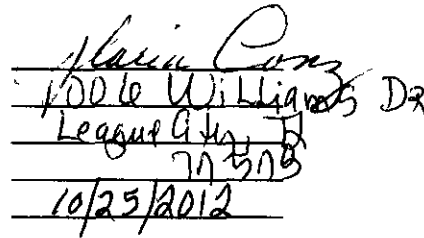 Maria Cruz
1006 Williams DR
League City, TX
77573
10/25/2012